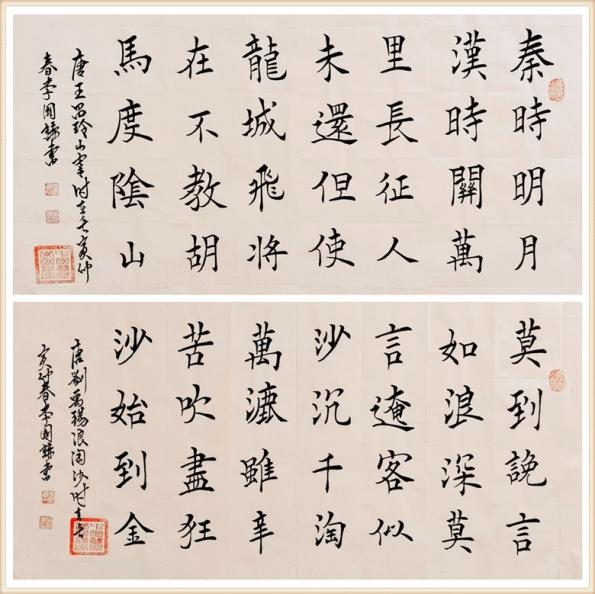 秦時明月
漢時關萬
里長征人
未還但使
龍城飛將
在不教胡
馬度陰山
唐王昌齡出塞时在己亥仲
春李国書
莫到讒言
如浪深莫
言遷客似
沙沉千淘
萬漉雖辛
苦吹盡狂
沙始到金
唐劉禹錫浪淘沙时在己
亥仲春李国書